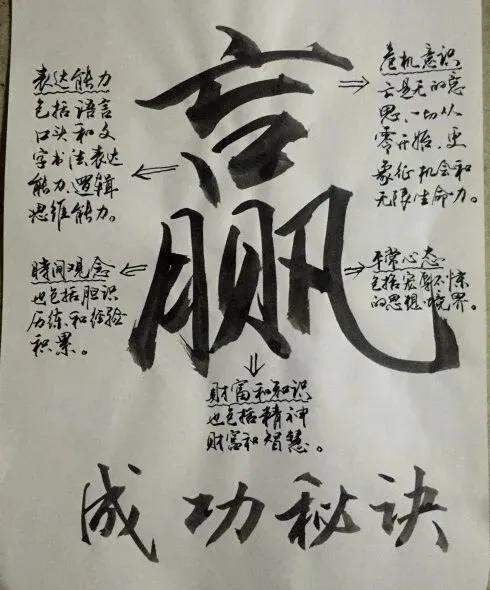 赢
危机意识
亡是无的意
思、一切从
零开始,更
象征机会和
无限生命力。
表达能力
包括语言
口头和文
字书法、表达
能力、逻辑
思维能力。
時间观念
也包括胆识
历练、和经验
积累。
财富和知识
也包括精神
财富和智慧。
平常心态
包括宠辱不惊
的思想境界。
成功秘诀